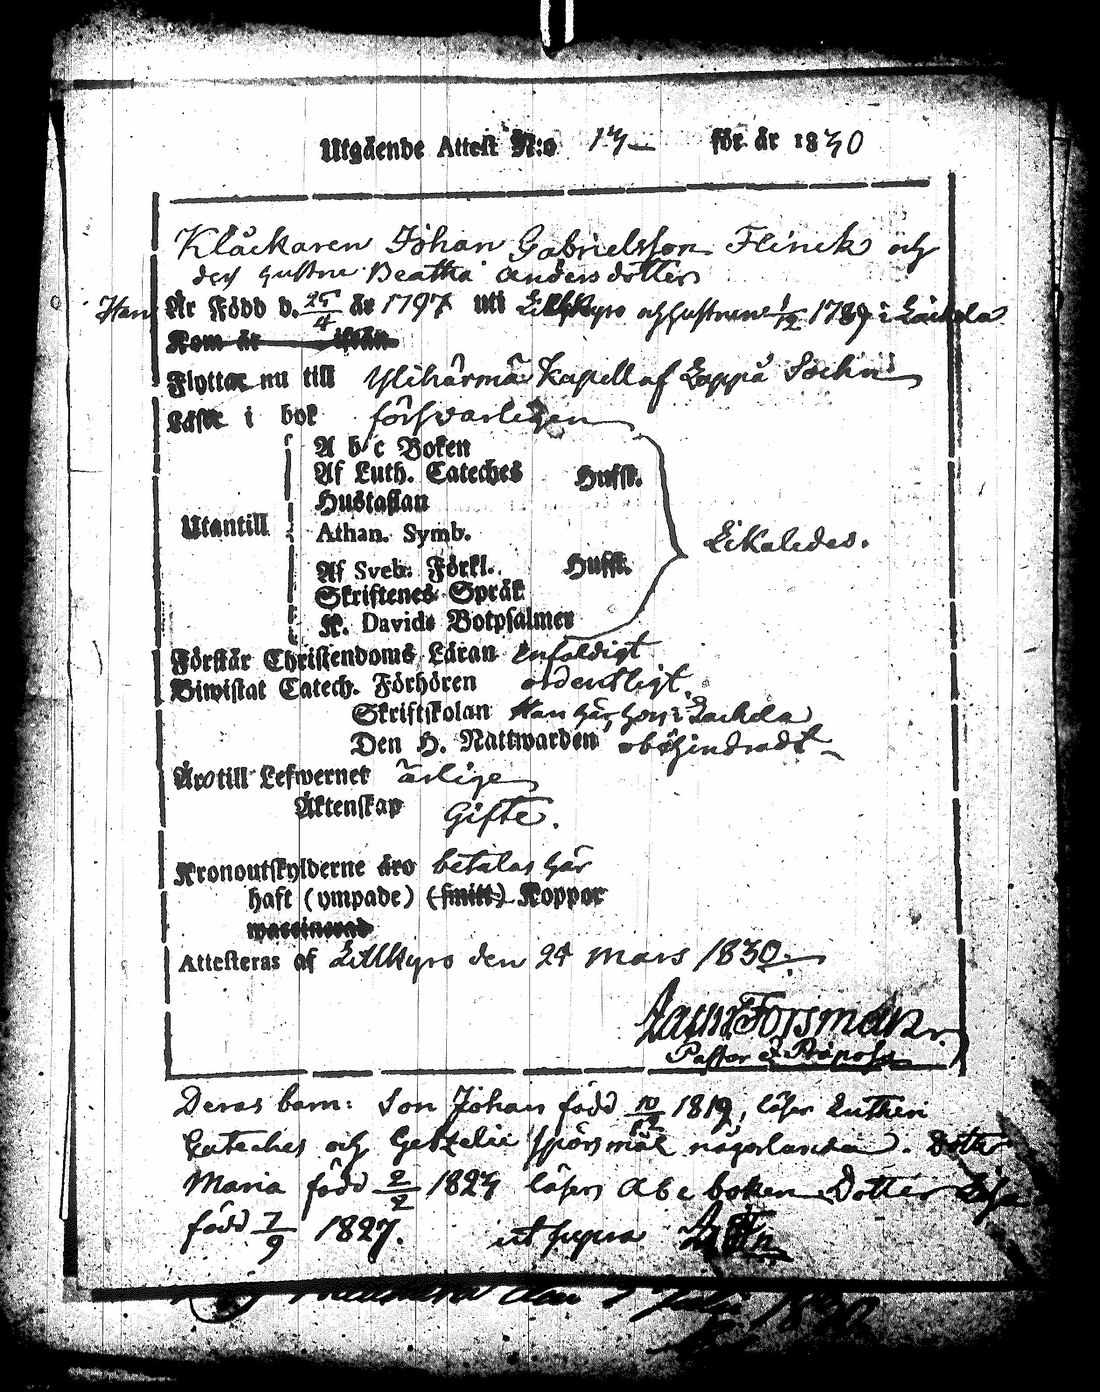 Utgående Attest N:o 13 för år 1830
Klåckaren Johan Gabrielsson Flinck och
des hustru Beatha Andersdotter
Han Är Född d. 25/4 år 1797 uti Lillkyro och hustrun 1/12 1789 i Laihela
Kom år ifrån
Flyttar nu till Ylihärmä Kapell af Lappå Sockn
Läser i bok försvarligen
A b c Boken
Af Luth. Cateches Hufst.
Hustaflan
Utantill
Athan. Symb. Likaledes.
Af Sveb. Förkl. Hufst.
Skriftenes Språk
K. Davids Botpsalmer
Förstår Christendoms Läran enfaldigt
Biwistat Catech. Förhören ordentligt
Skriftskolan Han här, hon i Laihela
Den H. Nattwarden obehindradt
Äro till Lefwernet ärlige
Äktenskap Gifte.
Kronoutskylderne äro betalas här
haft (ympade) (smitt) Koppor
waccinerad
Attesteras af Lillkyro den 24 Mars 1830.
Forsman
Pastor & Præpos.
Deras barn: Son Johan född 10/12 1819, läser Lutheri
Cateches och Getzelii spörsmål någorlunda. Dotter
Maria född 2/2 1823 läser Abc boken Dotter
född 7/9 1827. ut supra
den Juli 1830